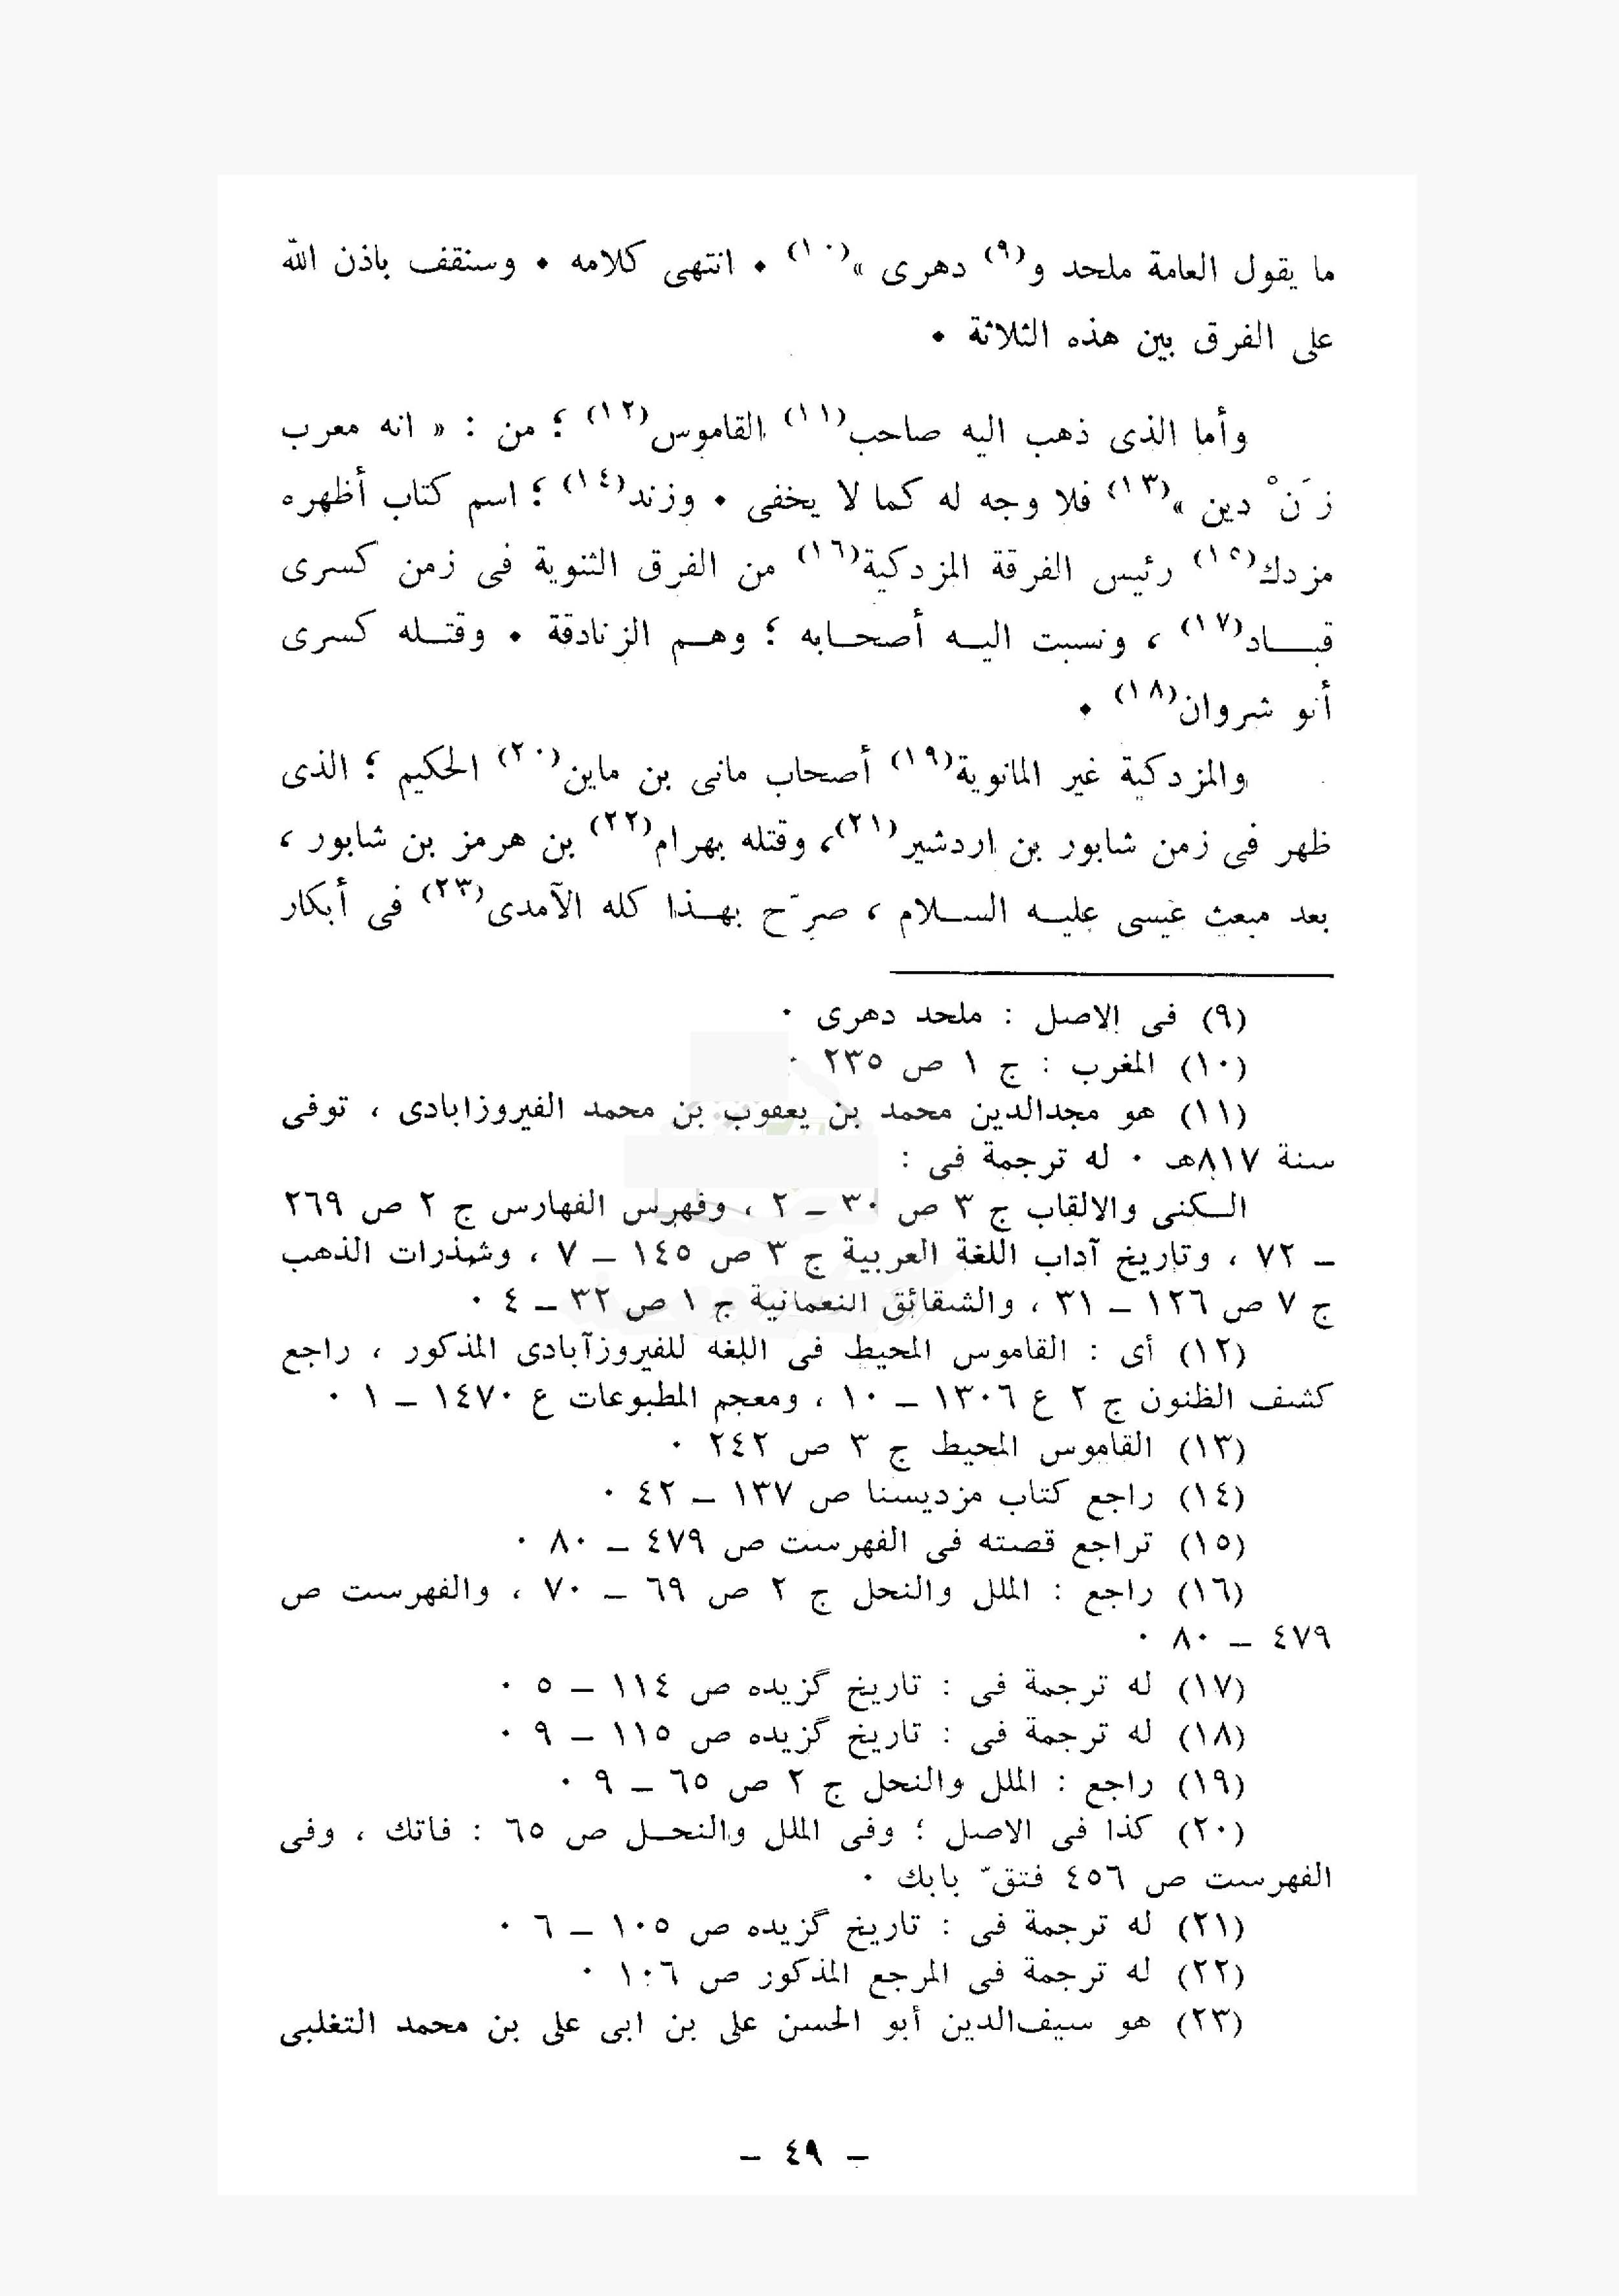 ما يقول العامة ملحد و(٩) دهرى »(١٠) ٠ انتهى كلامه ٠ وسنقف باذن الله
على الفرق بين هذه الثلاثة ٠
وأما الذى ذهب اليه صاحب(١١) القاموس(١٢) ؛ من : « انه معرب
زَنْ دين »(١٣) فلا وجه له كما لا يخفى ٠ وزند(١٤) ؛ اسم كتاب أظهره
مزدك(١٥) رئيس الفرقة المزدكية(١٦) من الفرق الثنوية فى زمن كسرى
قبــاد(١٧) ، ونسبت اليــه أصحــابه ؛ وهــم الزنادقة ٠ وقتــله كسرى
أنو شروان(١٨) ٠
والمزدكية غير المانوية(١٩) أصحاب مانى بن ماين(٢٠) الحكيم ؛ الذى
ظهر فى زمن شابور بن اردشير(٢١)، وقتله بهرام(٢٢) بن هرمز بن شابور ،
بعد مبعث عيسى عليــه الســلام ، صرّح بهــذا كله الآمدى(٢٣) فى أبكار
(٩) فى الاصل : ملحد دهرى ٠
(١٠) المغرب : ج ١ ص ٢٣٥ ٠
(١١) هو مجدالدين محمد بن يعقوب بن محمد الفيروزابادى ، توفى
سنة ٨١٧هـ ٠ له ترجمة فى :
الــكنى والالقاب ج ٣ ص ٣٠ – ٢ ، وفهرس الفهارس ج ٢ ص ٢٦٩
– ٧٢ ، وتاريخ آداب اللغة العربية ج ٣ ص ١٤٥ – ٧ ، وشذرات الذهب
ج ٧ ص ١٢٦ – ٣١ ، والشقائق النعمانية ج ١ ص ٣٢ – ٤ ٠
(١٢) أى : القاموس المحيط فى اللغه للفيروزآبادى المذكور ، راجع
كشف الظنون ج ٢ ع ١٣٠٦ – ١٠ ، ومعجم المطبوعات ع ١٤٧٠ – ١ ٠
(١٣) القاموس المحيط ج ٣ ص ٢٤٢ ٠
(١٤) راجع كتاب مزديسنا ص ١٣٧ – ٤٢ ٠
(١٥) تراجع قصته فى الفهرست ص ٤٧٩ – ٨٠ ٠
(١٦) راجع : الملل والنحل ج ٢ ص ٦٩ – ٧٠ ، والفهرست ص
٤٧٩ – ٨٠ ٠
(١٧) له ترجمة فى : تاريخ گزيده ص ١١٤ – ٥ ٠
(١٨) له ترجمة فى : تاريخ گزيده ص ١١٥ – ٩ ٠
(١٩) راجع : الملل والنحل ج ٢ ص ٦٥ – ٩ ٠
(٢٠) كذا فى الاصل ؛ وفى الملل والنحــل ص ٦٥ : فاتك ، وفى
الفهرست ص ٤٥٦ فتقّ بابك ٠
(٢١) له ترجمة فى : تاريخ گزيده ص ١٠٥ – ٦ ٠
(٢٢) له ترجمة فى المرجع المذكور ص ١٠٦ ٠
(٢٣) هو سيف‌الدين أبو الحسن على بن ابى على بن محمد التغلبى
– ٤٩ –